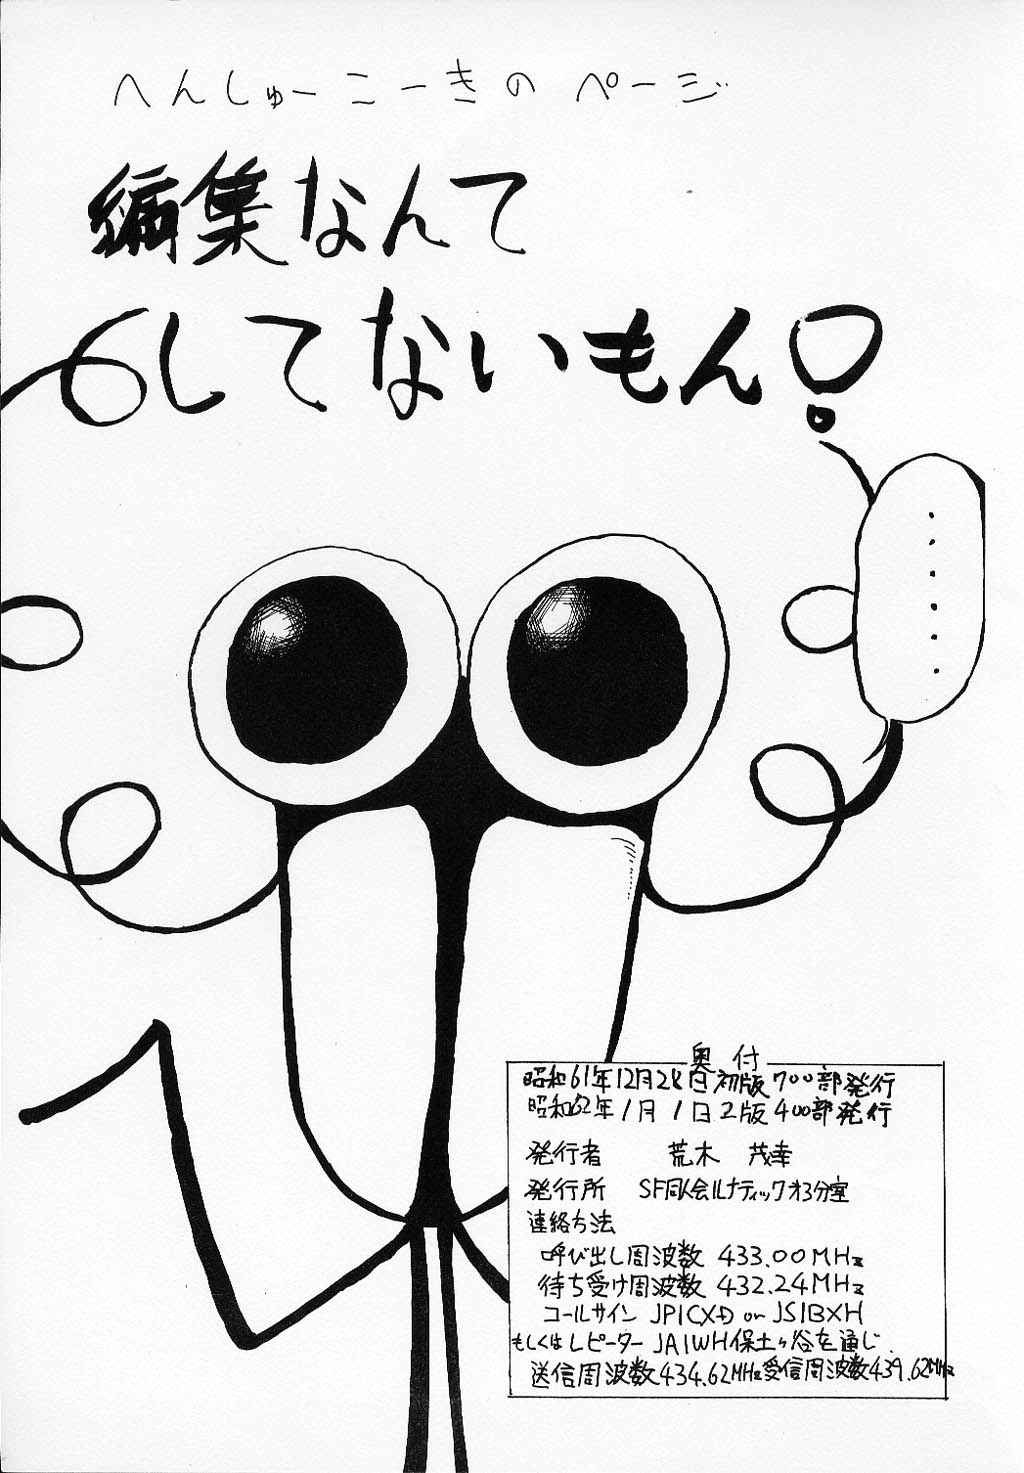 へんしゅーこーきのページ
編集なんて
してないもん!
……
奥付
昭和61年12月28日初版700部発行
昭和62年1月1日2版400部発行
発行者 荒木 茂幸
発行所 SF同人会ルナティックオ3分室
連絡方法
呼び出し周波数 433.00MHz
待ち受け周波数 432.24MHz
コールサイン JP1CXD or JS1BXH
もしくはレピーター JA1WH保土ヶ谷を通じ、
送信周波数434.62MHz受信周波数439.62MHz